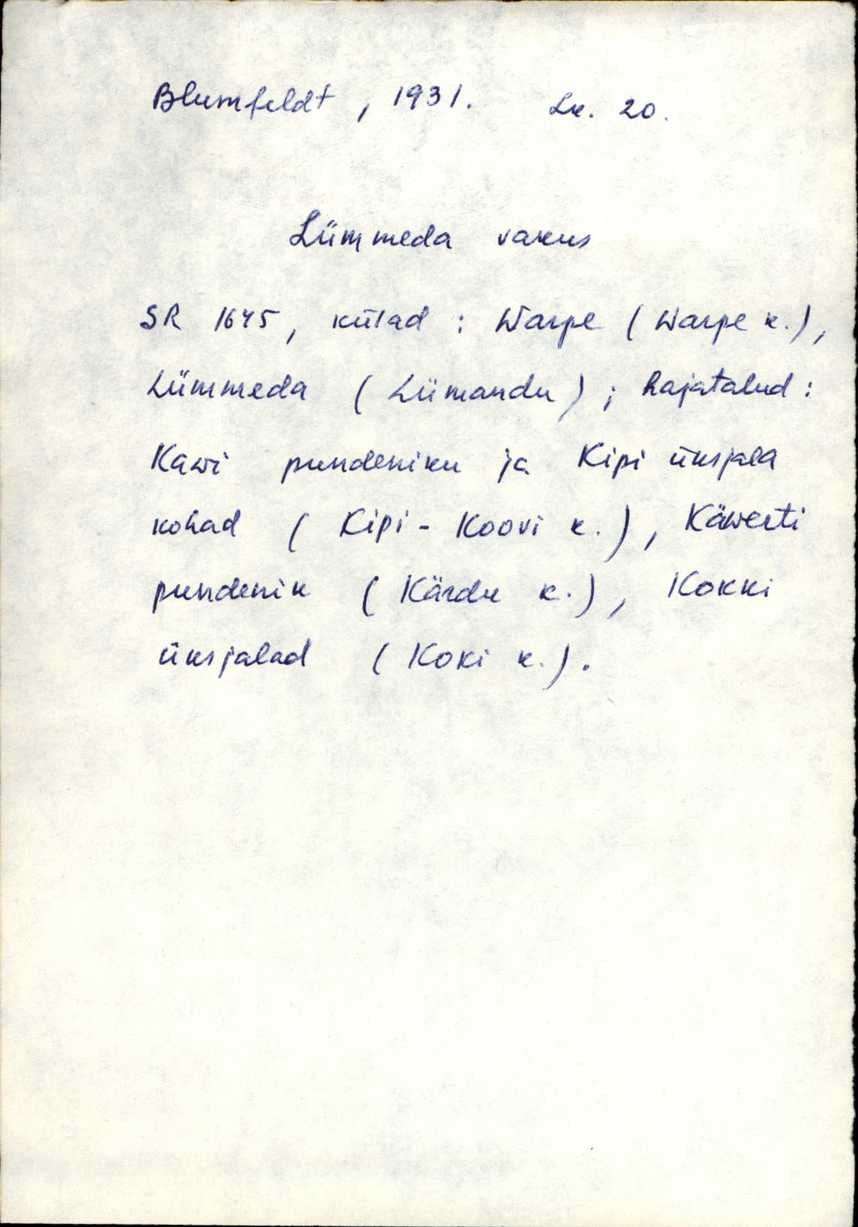 Blumfeldt, 1931. Lk. 20.
Lümmeda vakus
SR 1645, külad: Warpe (Warpe k.),
Lümmeda (Lümandu); hajatalud:
Kawi pundeniku ja Kipi üksjala
kohad (Kipi-Koovi k.), Käwerti
pundenik (Kärdu k.), Kokki
üksjalad (Koki k.).